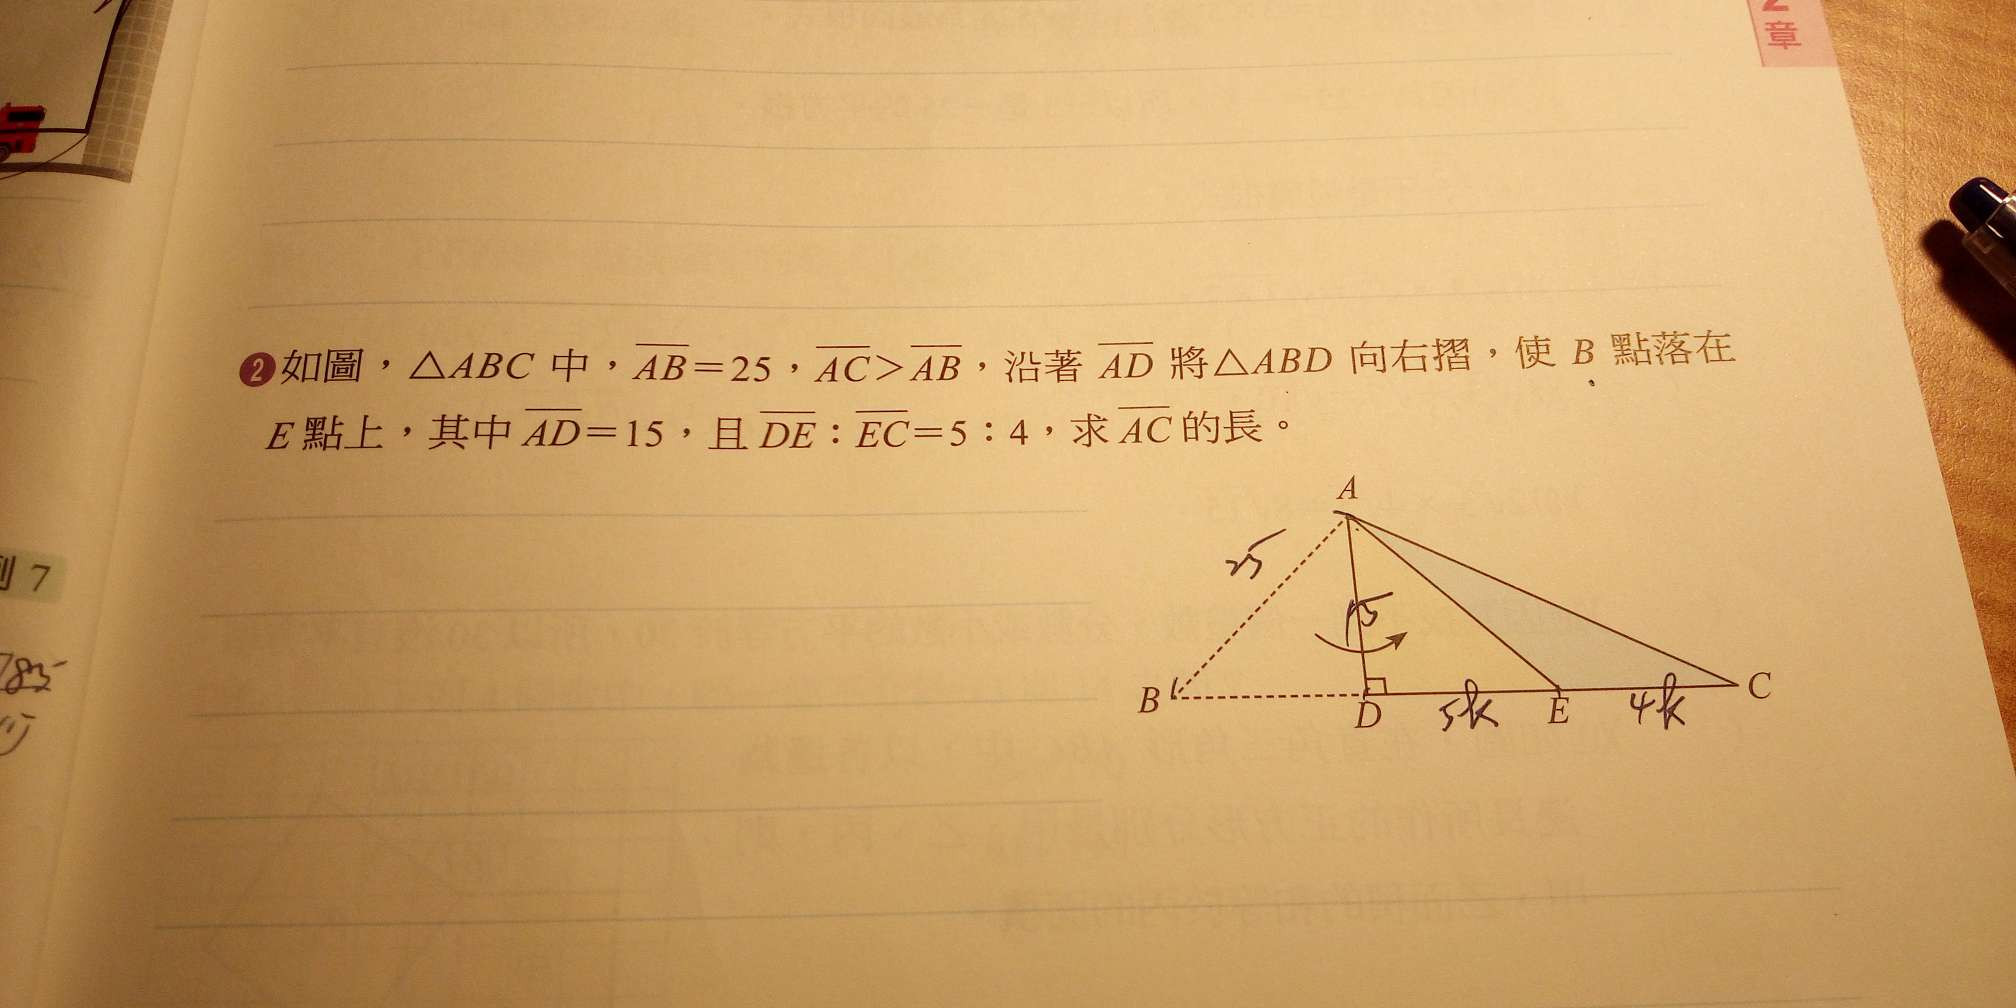 章
❷如圖，△ABC 中，AB＝25，AC＞AB，沿著 AD 將△ABD 向右摺，使 B 點落在
E 點上，其中 AD＝15，且 DE：EC＝5：4，求 AC 的長。
A
25
15
7
B
D
5k
E
4k
C